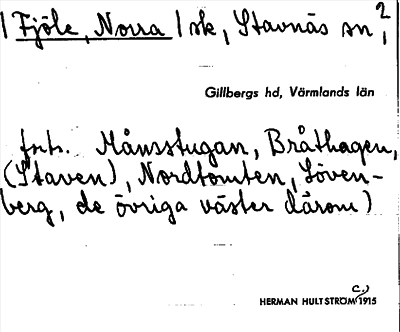 | Fjöle, Norra | sk, Stavnäs sn, 2
Gillbergs hd, Värmlands län
forts. Månsstugan, Bråthagen,
(Staven), Nordtomten, Löven-
berg, de övriga väster därom)
HERMAN HULTSTRÖM c.) 1915